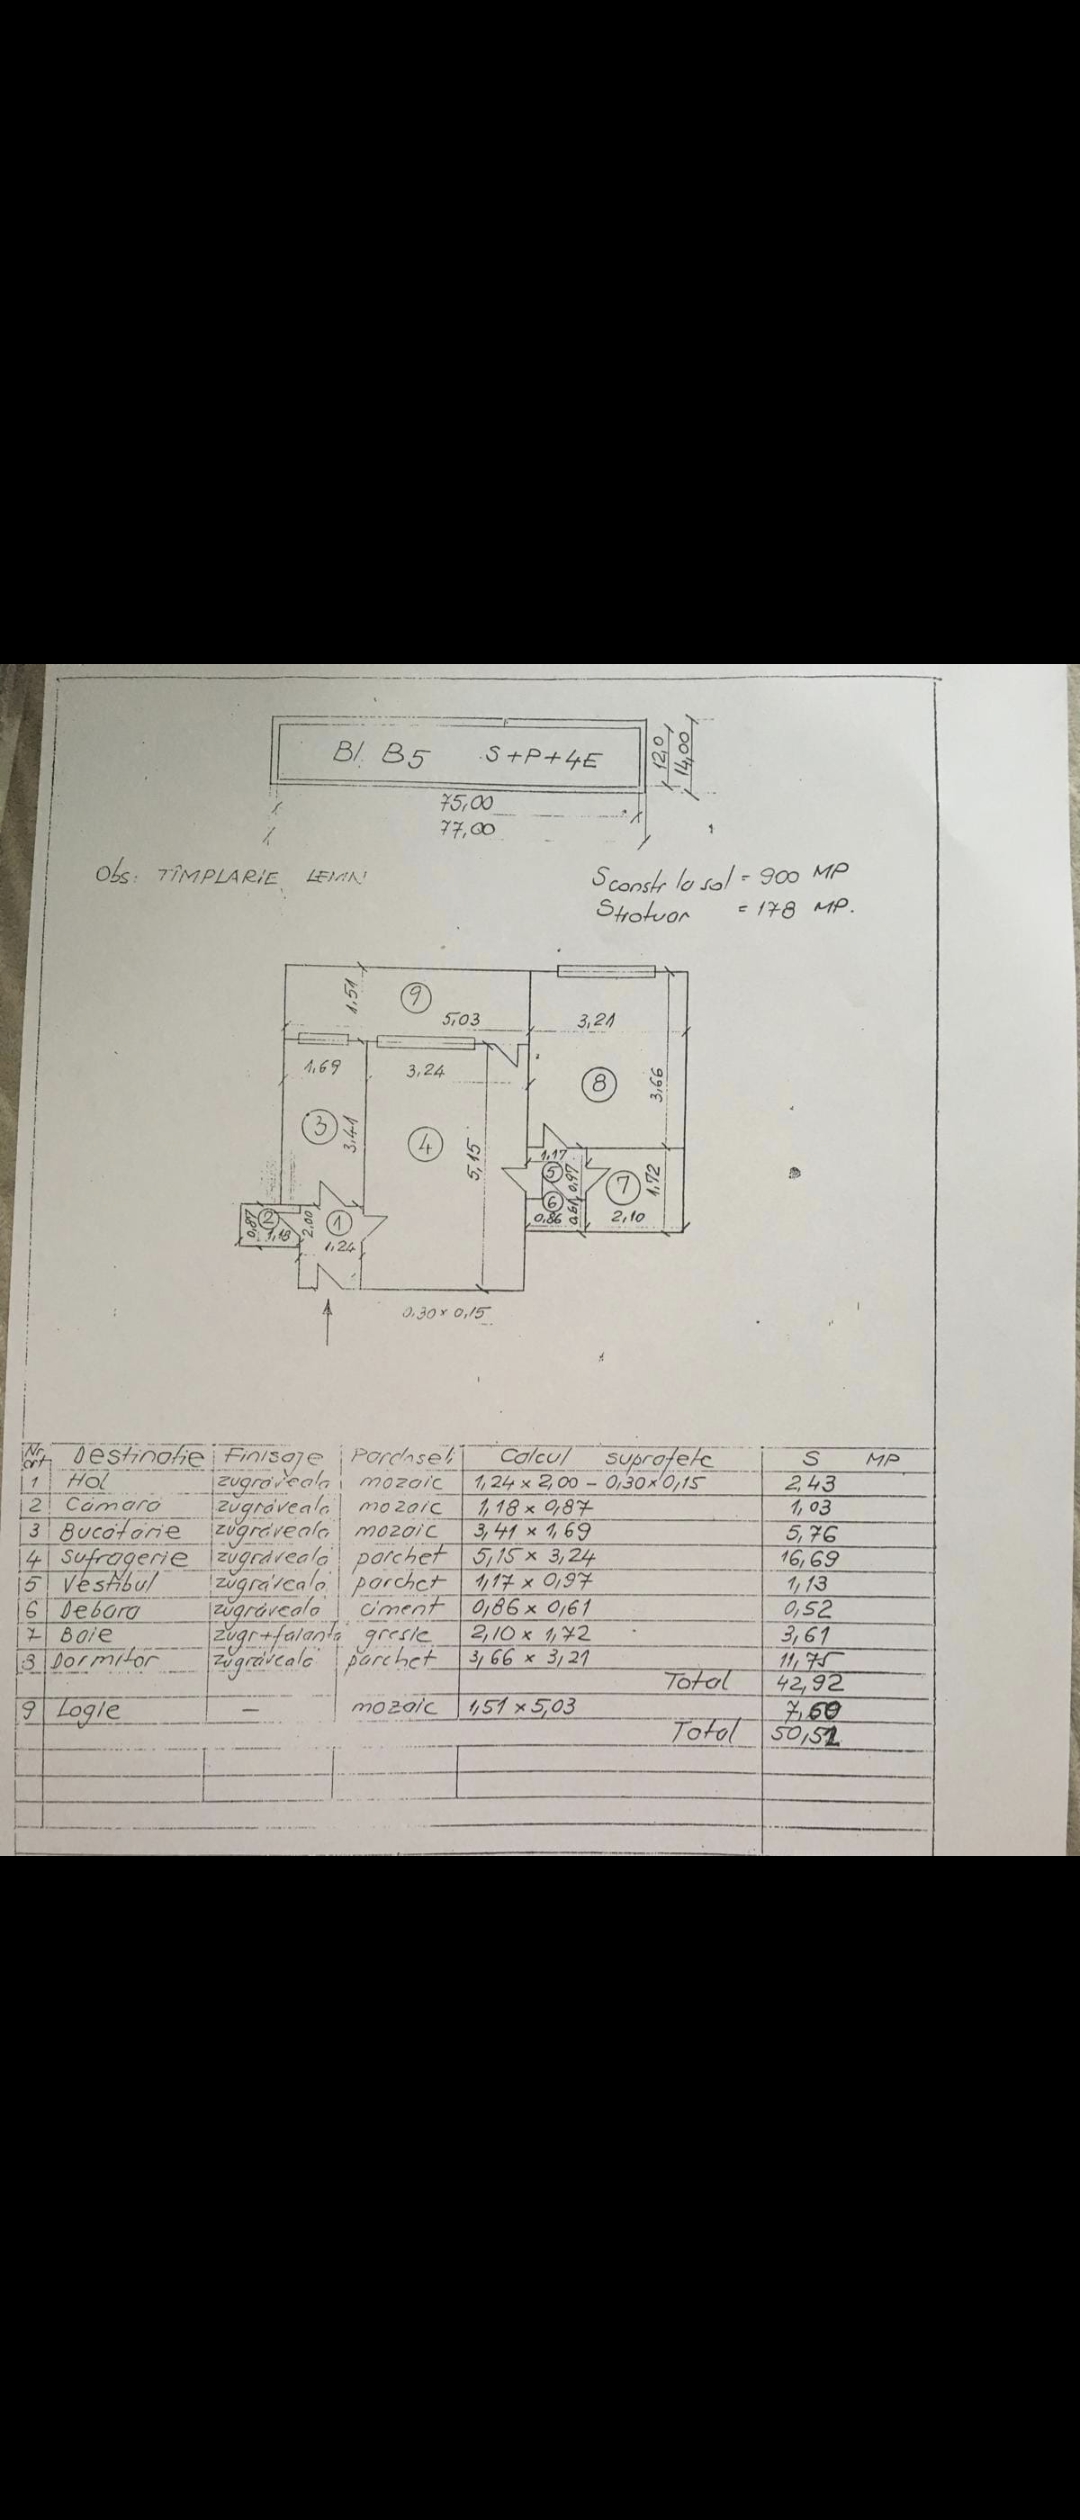 Bl. B5 S+P+4E
12,0
14,00
75,00
77,00
Obs: TÎMPLARIE LEMN
Sconstr la sol = 900 MP
Strotuar = 178 MP.
1,51
9
5,03
3,21
1,69
3,24
8
3,66
3
3,41
4
5,15
1,17
5
0,97
7
1,72
2
0,87
1,18
2,00
1
1,24
6
0,86
0,61
2,10
0,30 x 0,15
Nr. crt Destinatie Finisaje Pardoseli Calcul suprafete S MP
1 Hol zugráveala mozaic 1,24 x 2,00 - 0,30x0,15 2,43
2 Cámara zugráveala mozaic 1,18 x 0,87 1,03
3 Bucatarie zugráveala mozaic 3,41 x 1,69 5,76
4 Sufragerie zugráveala parchet 5,15 x 3,24 16,69
5 Vestibul zugráveala parchet 1,17 x 0,97 1,13
6 Debara zugráveala ciment 0,86 x 0,61 0,52
7 Baie zugr+faianta gresie 2,10 x 1,72 3,61
8 Dormitor zugráveala parchet 3,66 x 3,21 11,75
Total 42,92
9 Logie — mozaic 1,51 x 5,03 7,60
Total 50,52